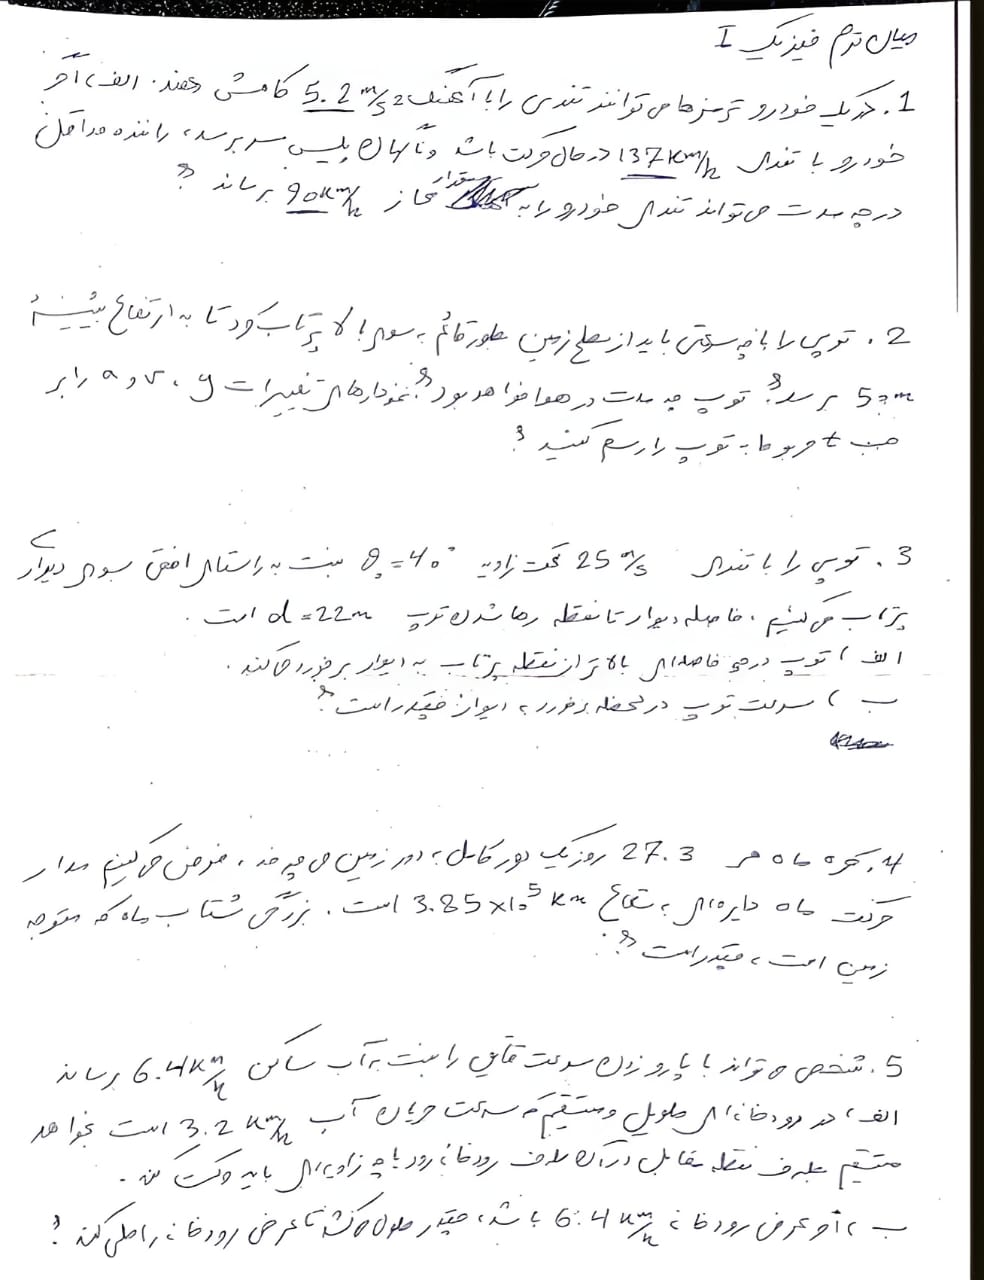 میان ترم فیزیک I
1. در یک خودرو ترمزها می توانند تندی را با آهنگ 5.2 m/s² کاهش دهند. الف) اگر
خودرو با تندی 137 km/h در حال حرکت باشد و ناگهان پلیس سر برسد، راننده حداقل
در چه مدت می تواند تندی خودرو را به مقدار مجاز 90 km/h برساند؟
2. توپی را با چه سرعتی باید از سطح زمین بطور قائم به سوی بالا پرتاب کرد تا به ارتفاع بیشینهٔ
50 m برسد؟ توپ چه مدت در هوا خواهد بود؟ نمودارهای تغییرات y، v و a را بر
حسب t مربوط به توپ را رسم کنید؟
3. توپی را با تندی 25 m/s تحت زاویه θ₀ = 40° نسبت به راستای افقی سوی دیواری
پرتاب می کنیم، فاصله دیوار تا نقطه رها شدن توپ d = 22m است.
الف) توپ در چه فاصله‌ای بالاتر از نقطه پرتاب به دیوار برخورد می کند.
ب) سرعت توپ در لحظه برخورد به دیوار چقدر است؟
4. کره ماه هر 27.3 روز یک دور کامل به دور زمین می چرخد، فرض می کنیم مدار
حرکت ماه دایره‌ای به شعاع 3.85 × 10⁵ km است. بزرگی شتاب ماه که متوجه
زمین است، چقدر است؟
5. شخصی می تواند با پارو زدن سرعت قایق را نسبت به آب ساکن 6.4 km/h برساند
الف) در رودخانه‌ای طویل و مستقیم که سرعت جریان آب 3.2 km/h است بخواهد
مستقیم بطرف نقطه مقابل در آن طرف رودخانه رود با چه زاویه‌ای باید حرکت کند.
ب) اگر عرض رودخانه 6.4 km/h باشد، چقدر طول می کشد تا عرض رودخانه را طی کند؟